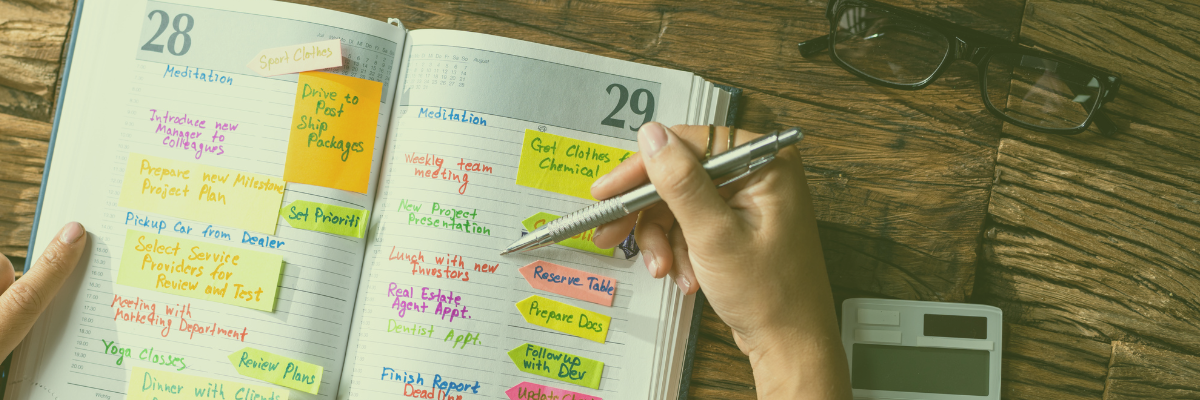 28
Sport Clothes
Meditation
Drive to
Post
Ship
Packages
Introduce new
Manager to
Colleagues
Prepare new Milestone
Project Plan
Set Prioriti
Pickup Car from Dealer
Select Service
Providers for
Review and Test
Meeting with
Marketing Department
Yoga Classes
Review Plans
Dinner with Clients
August
29
Meditation
Get Clothes f
Chemical
Weekly team
meeting
New Project
Presentation
Lunch with new
Investors
Reserve Table
Real Estate
Agent Appt.
Prepare Docs
Dentist Appt.
Followup
with Dev
Finish Report
Deadline
Update